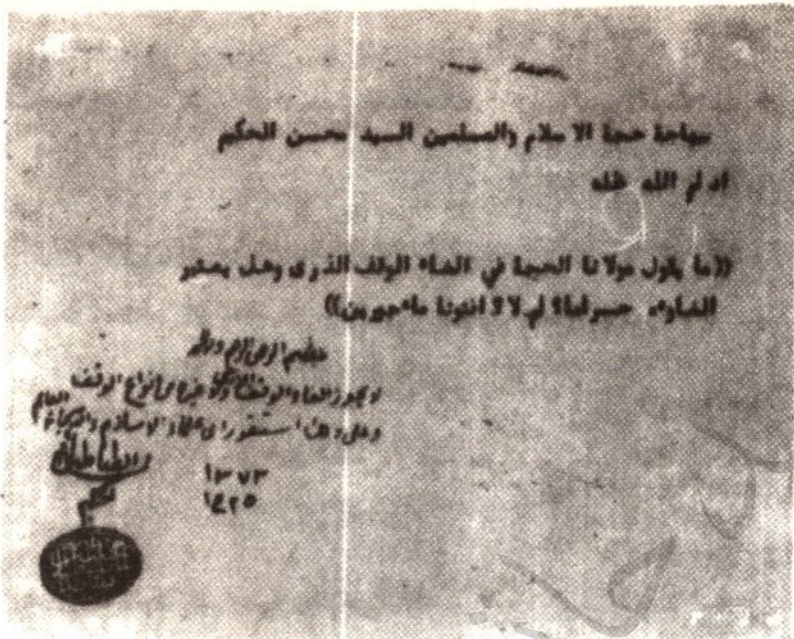 سماحة حجة الاسلام والمسلمين السيد محسن الحكيم
ادام الله ظله
((ما يقول مولانا الحجة في الغاء الوقف الذرى وهل يعتبر
الغاوءه حراما؟ ام لا؟ افتونا ماءجورين))
بسم الله الرحمن الرحيم
لا يجوز الغاء الوقف الذري ولا غيره من انواع الوقف
وعلى ذلك استقر راى علماء الاسلام
الطباطبائي
الحكيم
١٣٧٣